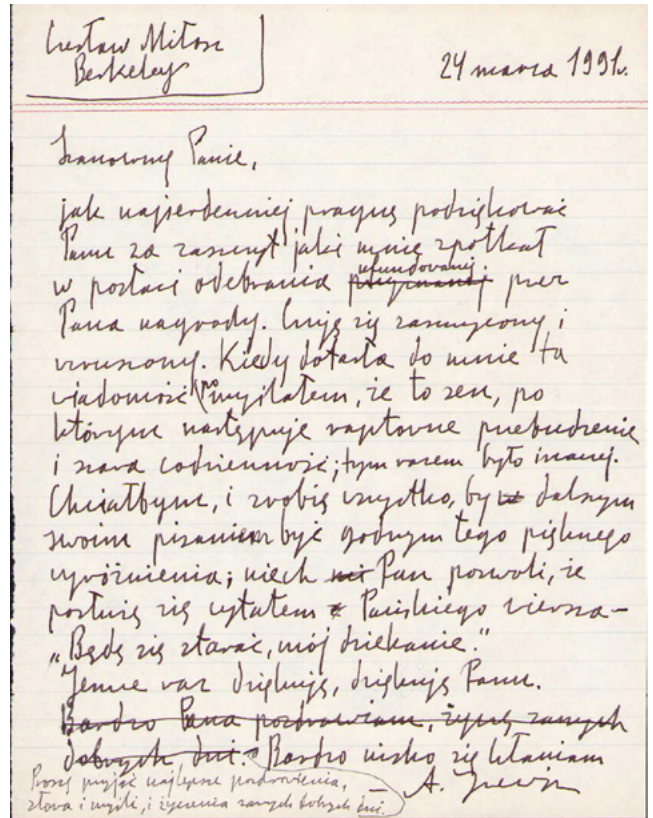 Czesław Miłosz
Berkeley
24 marca 1991.
Szanowny Panie,
jak najserdeczniej pragnę podziękować
Panu za zaszczyt jaki mnie spotkał
w postaci odebrania przyznanej ufundowanej przez
Pana nagrody. Czuję się zaszczycony i
wzruszony. Kiedy dotarła do mnie ta
wiadomość pomyślałem, że to sen, po
którym następuje raptowne przebudzenie
i szara codzienność; tym razem było inaczej.
Chciałbym, i zrobię wszystko, by dalszym
swoim pisaniem być godnym tego pięknego
wyróżnienia; niech Pan pozwoli, że
posłużę się cytatem z Pańskiego wiersza –
„Będę się starać, mój dziekanie."
Jeszcze raz dziękuję, dziękuję Panu.
Bardzo Pana pozdrawiam, życzę samych
dobrych dni. Bardzo nisko się kłaniam
Proszę przyjąć najlepsze pozdrowienia,
słowa i myśli, i życzenia samych dobrych dni.
A.